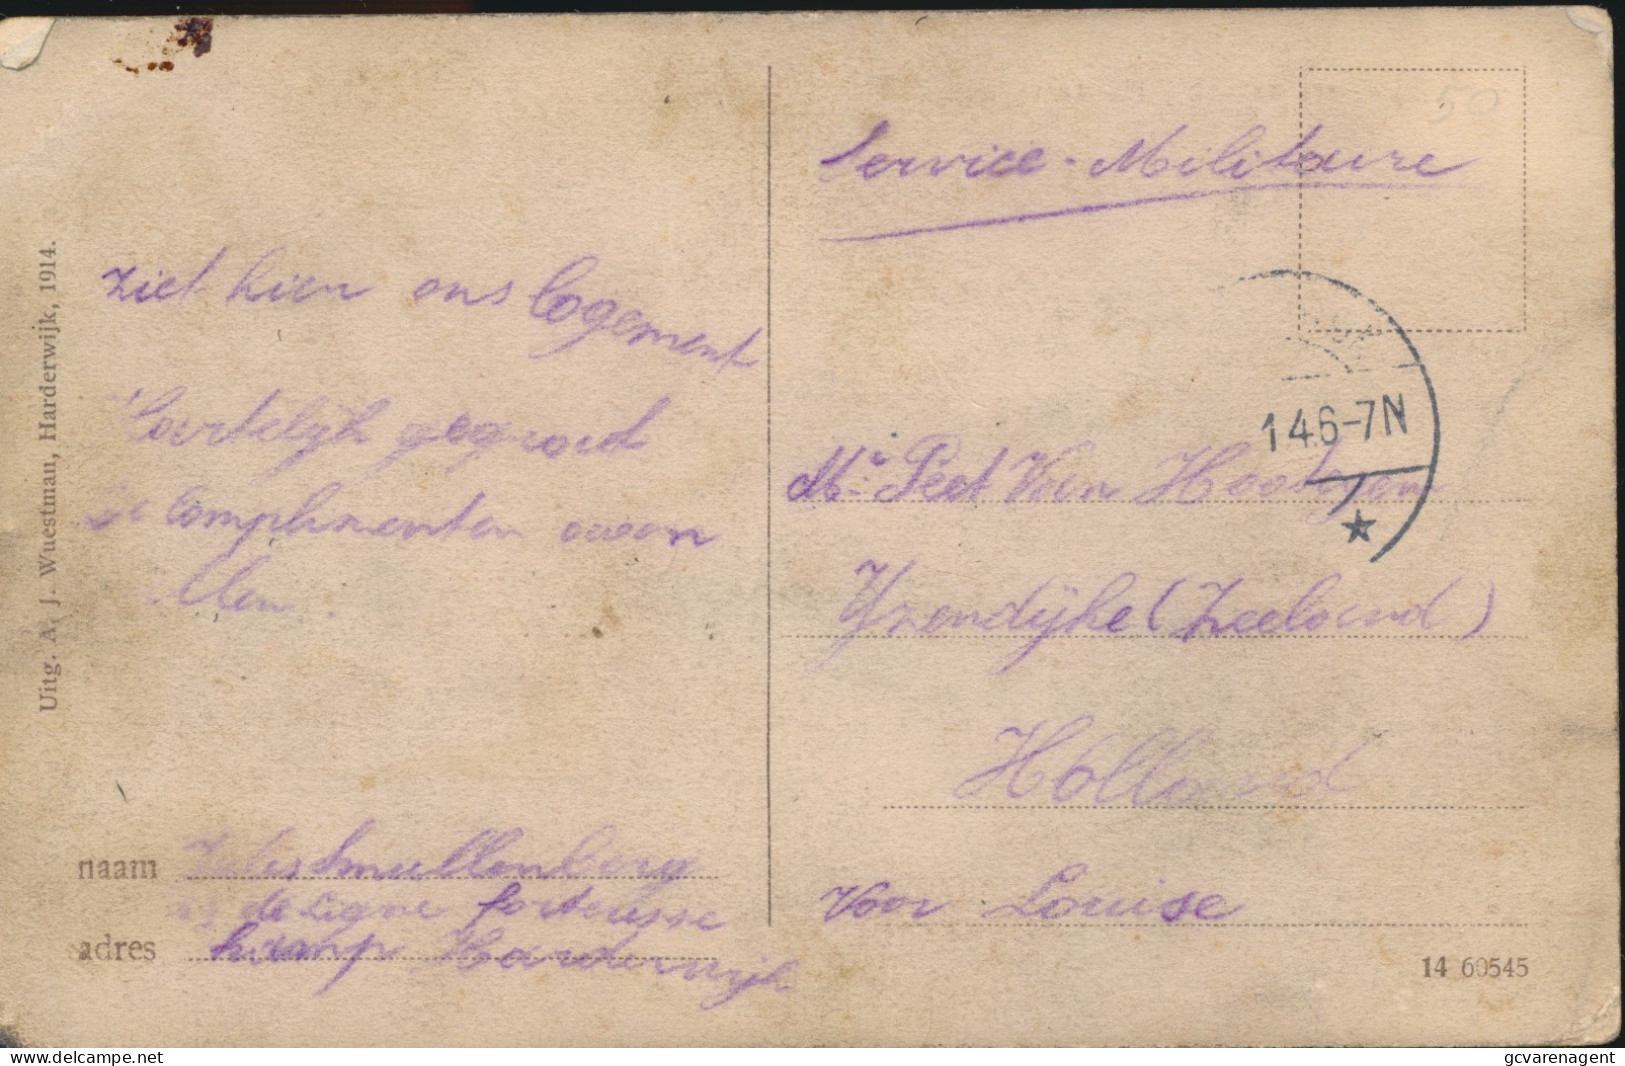 Uitg. A. J. Wuestman, Harderwijk, 1914.
Ziet hier ons Logement
Hartelijk gegroet
Complimenten aan
naam Smullenberg
de Ligne forteresse
adres kamp Harderwijk
50
Service-Militaire
14 6-7N
Mr Peet Van
Yzendijke (Zeeland)
Holland
Voor Louise
14 60545
www.delcampe.net
gcvarenagent